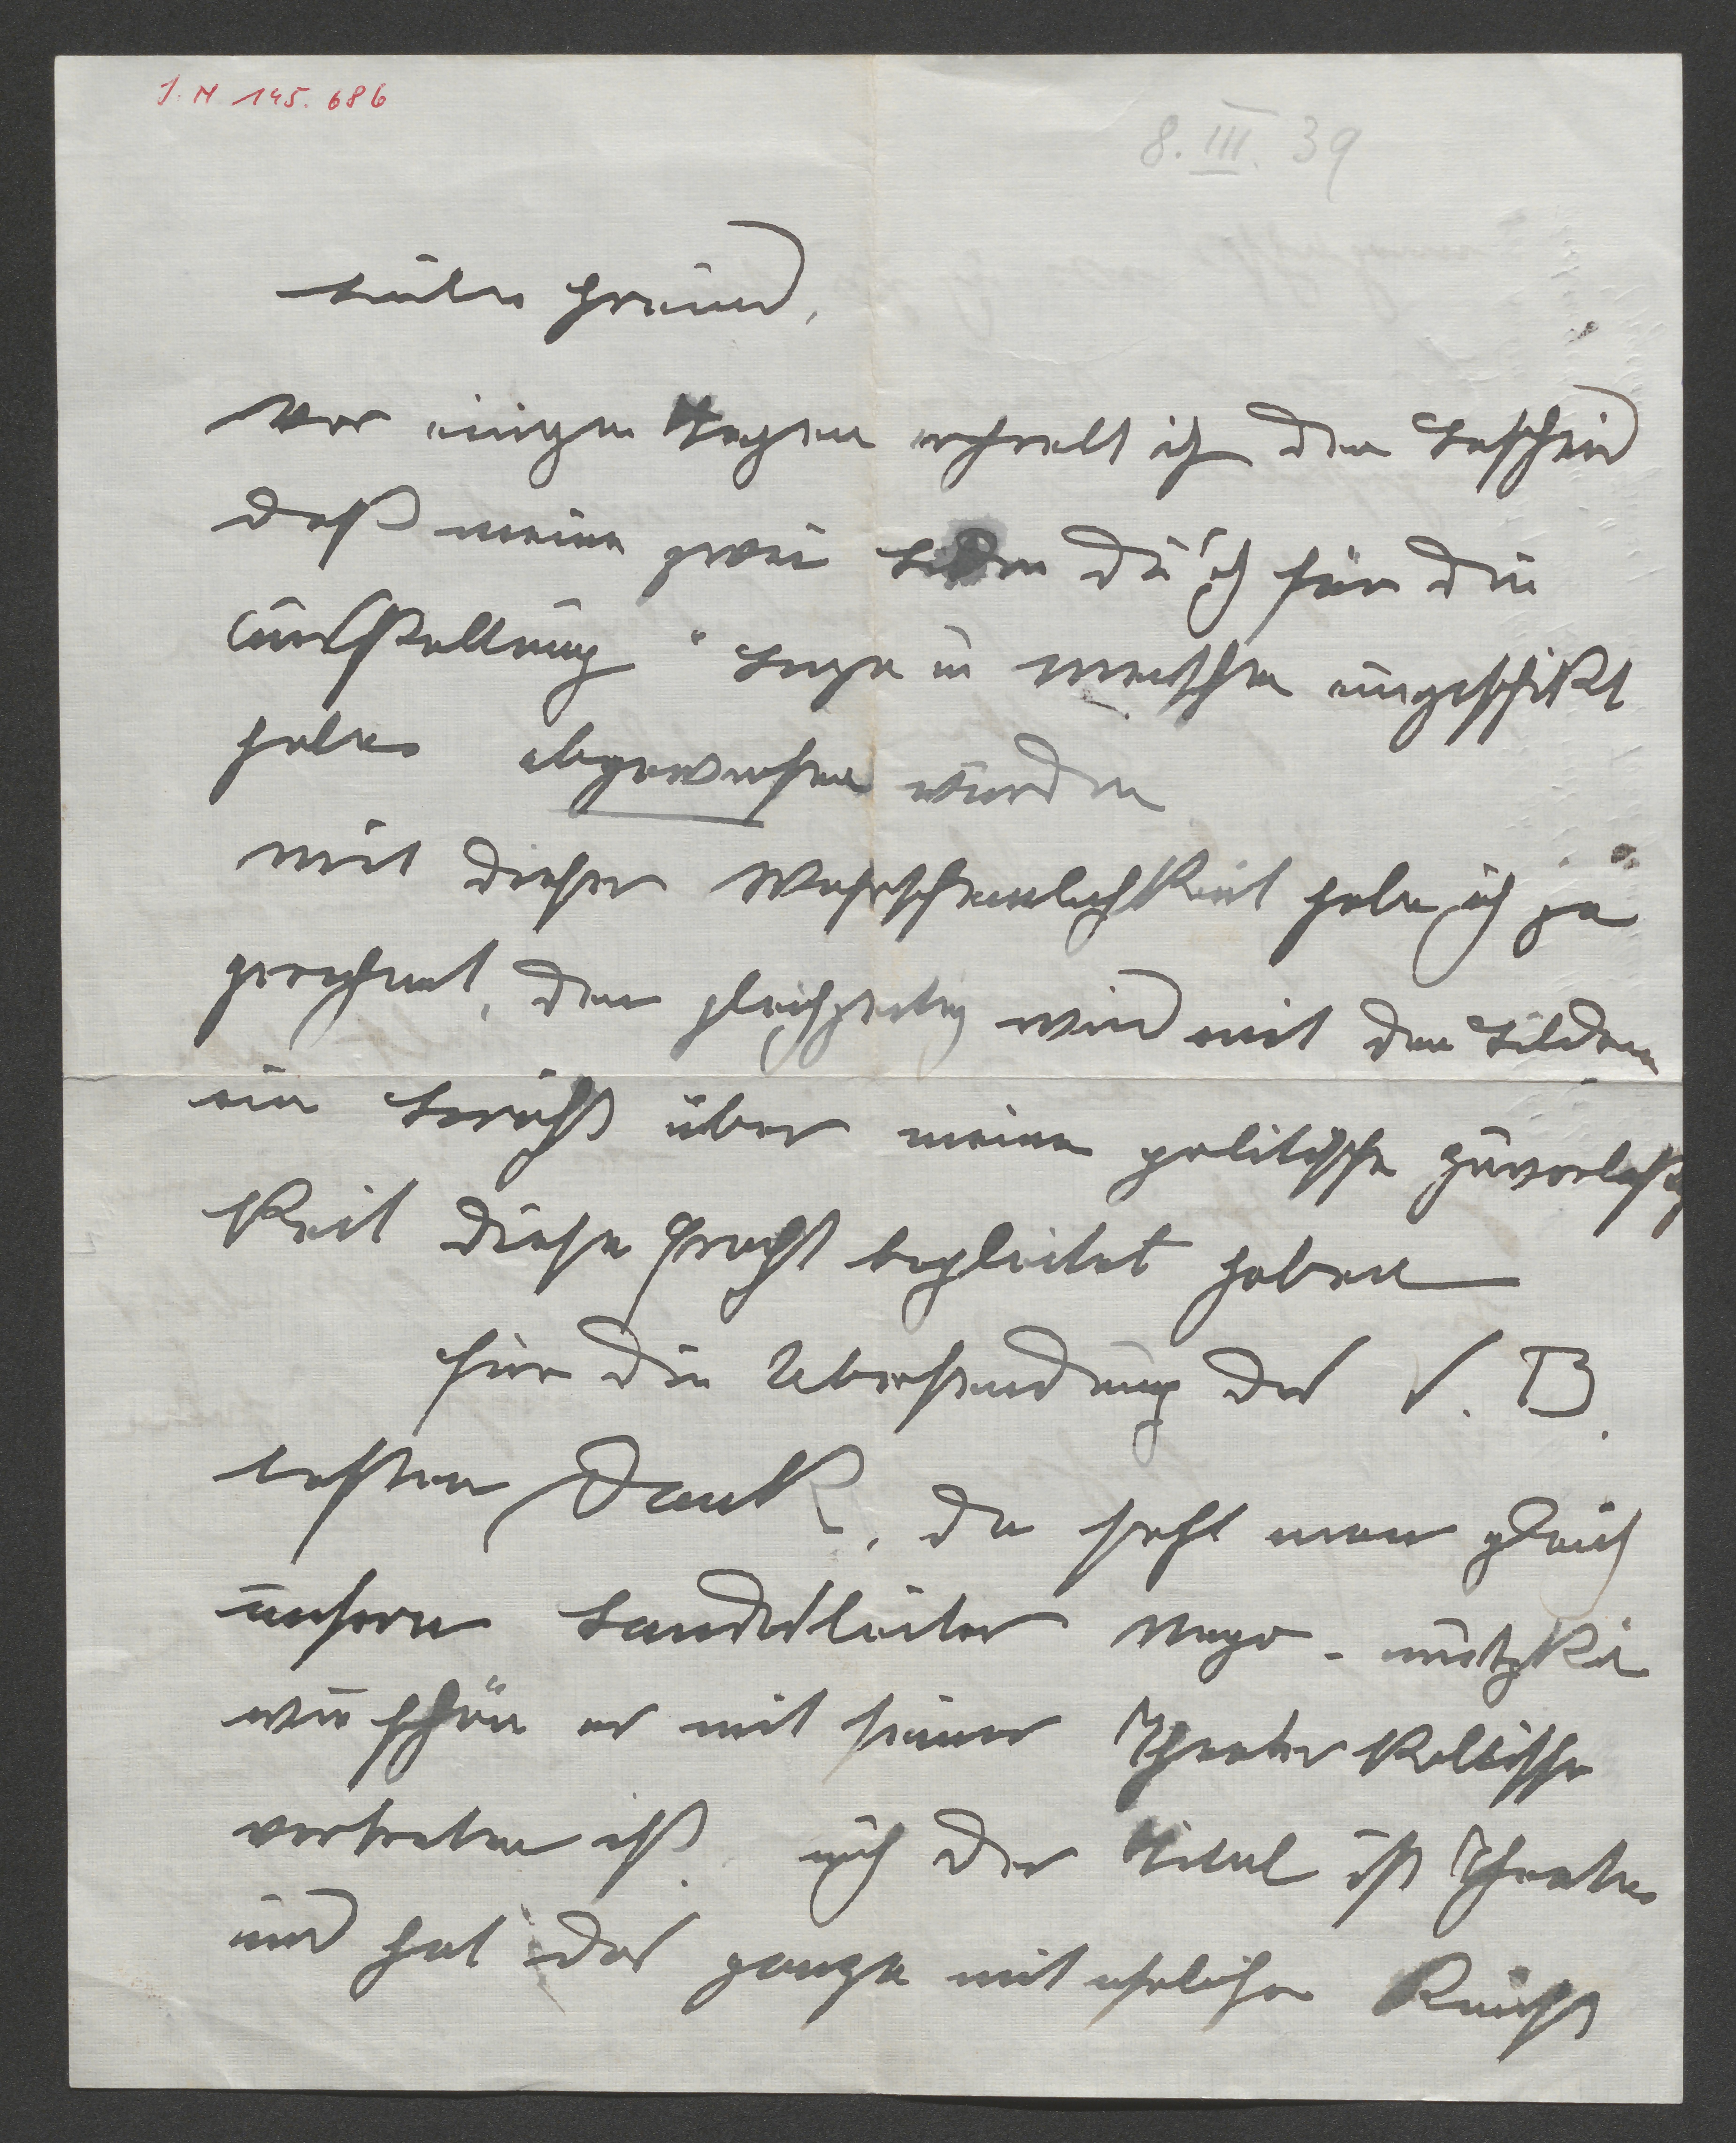 I. N 145.686
8. III. 39
Lieber Freund,
vor einigen Tagen erhielt ich den Bescheid
daß meine zwei Bilder die ich für die
Ausstellung "Berge u Menschen eingeschikt
habe abgewiesen wurden
mit dieser Wahrscheinlichkeit habe ich ja
gerechnet, den gleichzeitig wird mit den Bildern
ein Bericht über meine politische Zuverlaßig
keit diese Fracht begleitet haben
für die Übersendung des V. B.
besten Dank, da sieht man gleich
unsern Landesleiter
wie schön er mit seiner Theater
vertreten ist auch der Titel ist Theater
und hat das ganze mit ehrlicher Kunst